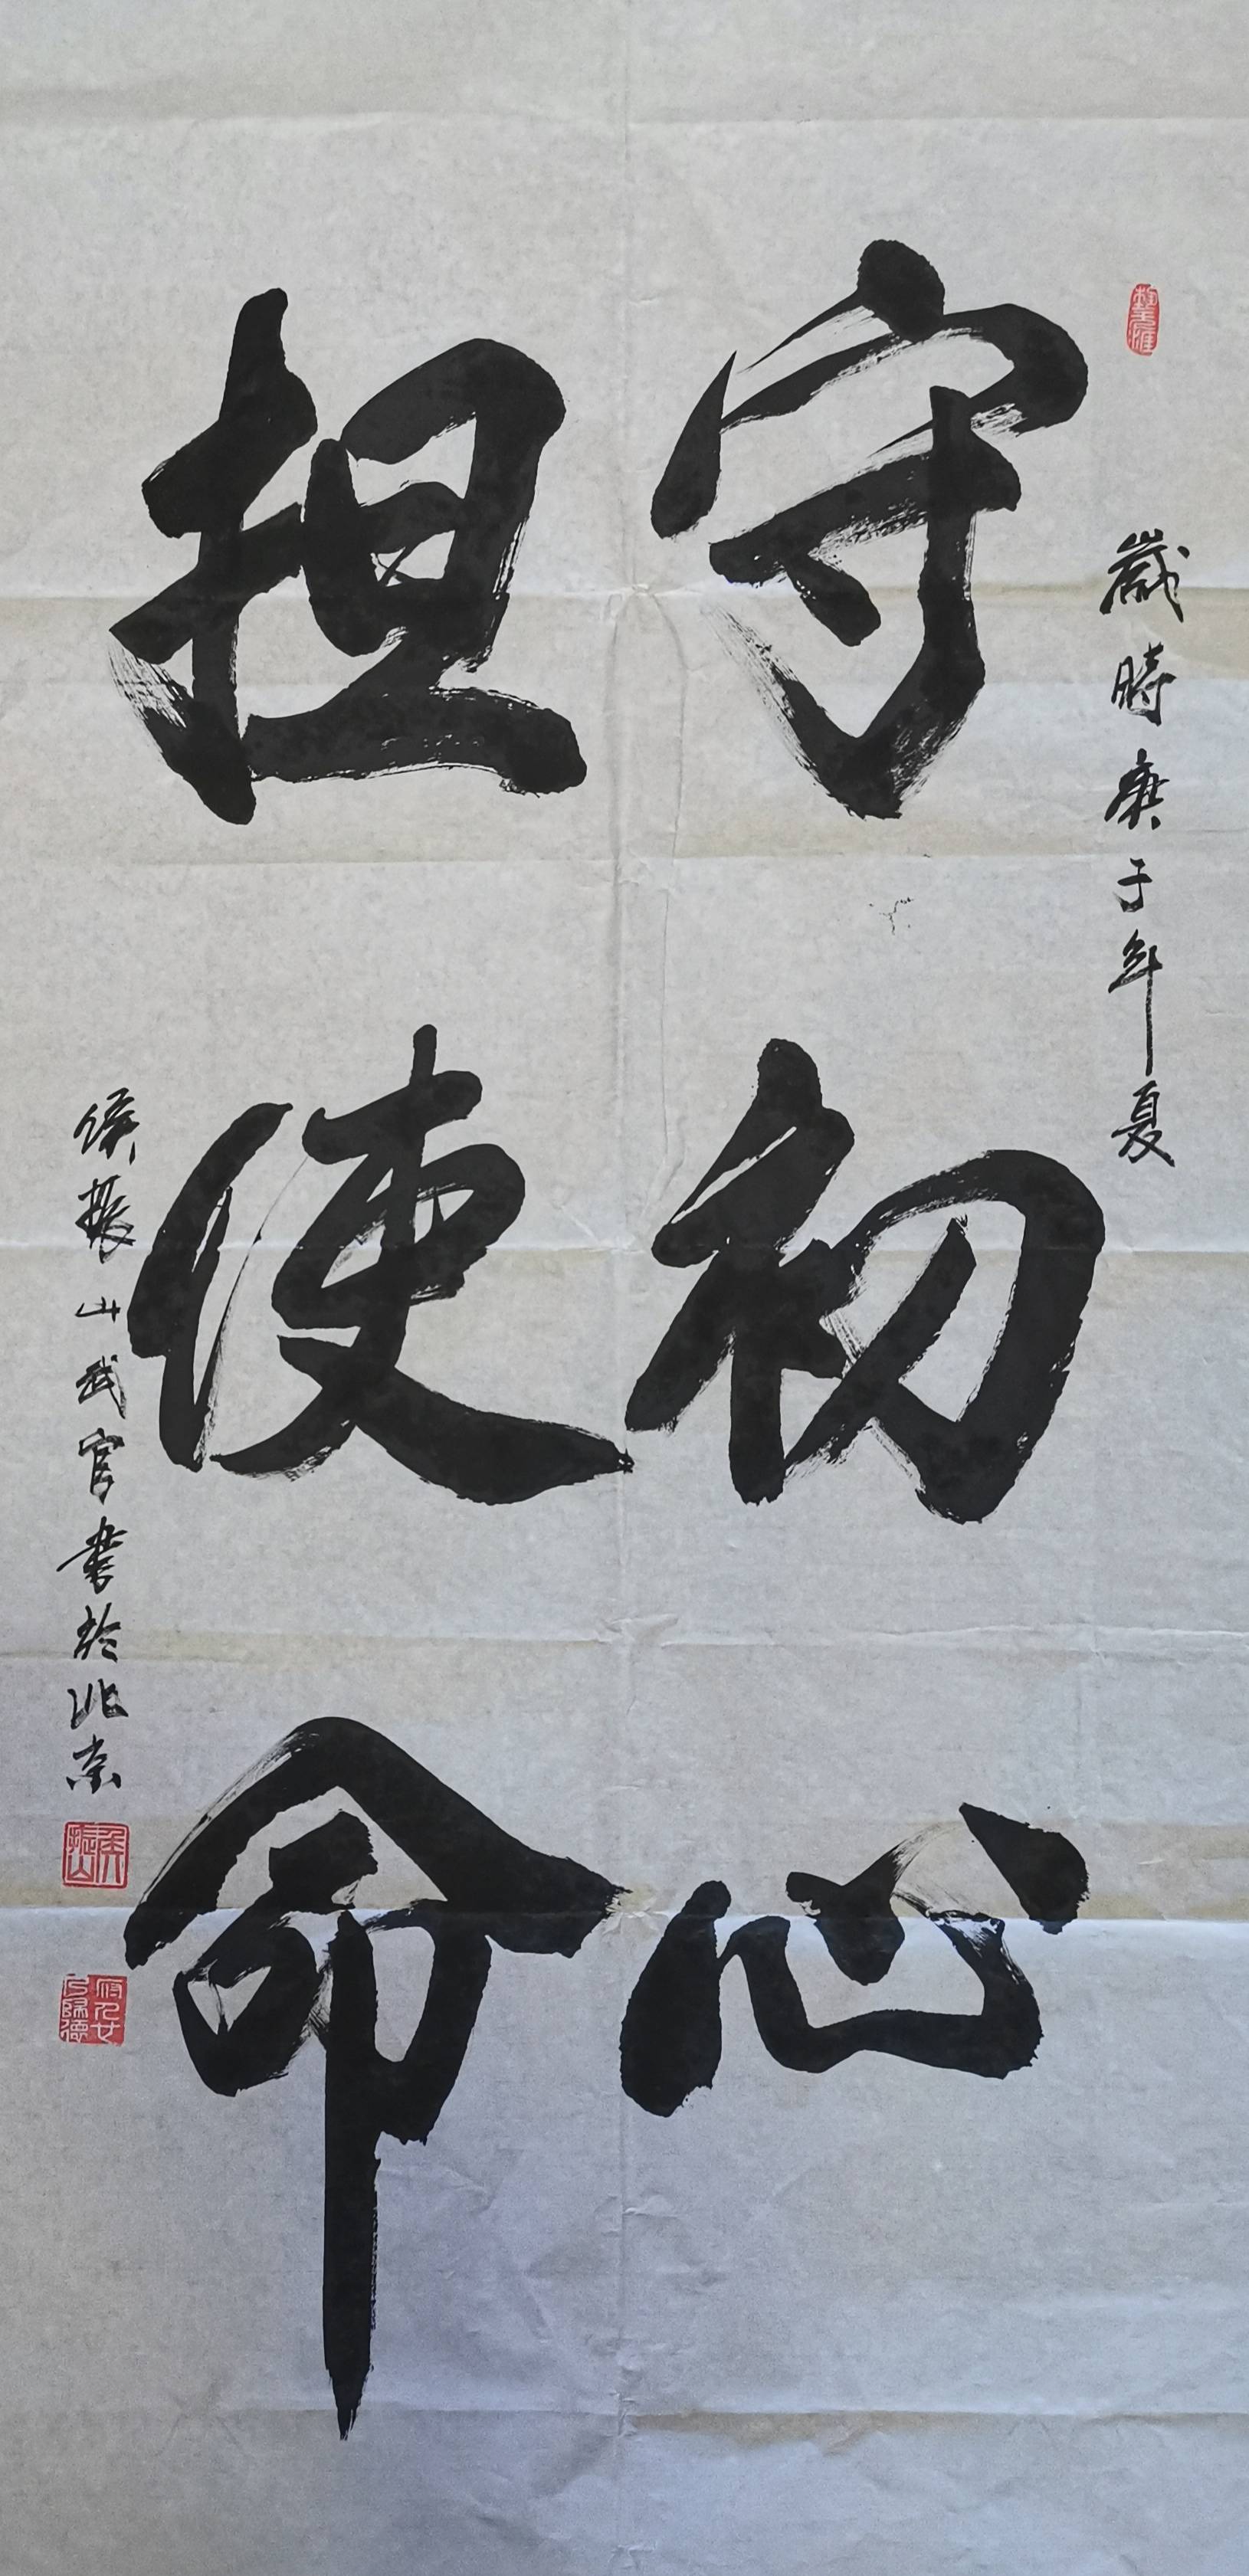 歲時庚子年夏
守初心
担使命
侯振山武官書於北京
侯振山